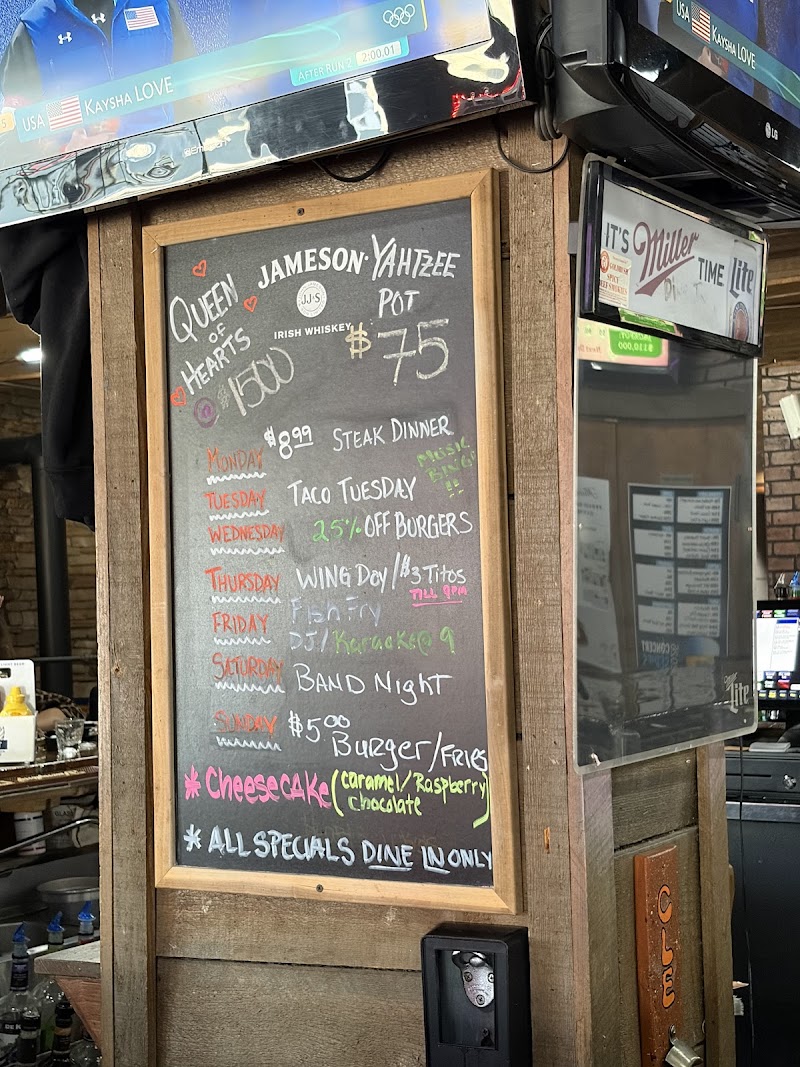 USA KAYSHA LOVE
AFTER RUN 2 2:00.01
USA KAYSHA LOVE
LG
QUEEN
OF
HEARTS
$1500
JAMESON
JJ&S
IRISH WHISKEY
YAHTZEE
POT
$75
MONDAY $8.99 STEAK DINNER
MUSIC
BINGO
!!
TUESDAY TACO TUESDAY
WEDNESDAY 25% OFF BURGERS
THURSDAY WING Day/$3 Titos
TILL 9PM
FRIDAY Fish Fry
DJ/Karaoke@9
SATURDAY BAND NIGHT
SUNDAY $5.00 Burger/FRIES
* CHEESECAKE (caramel/Raspberry)
chocolate
* ALL SPECIALS DINE IN ONLY
IT'S Miller TIME Lite
$110,000
Lite
CLE